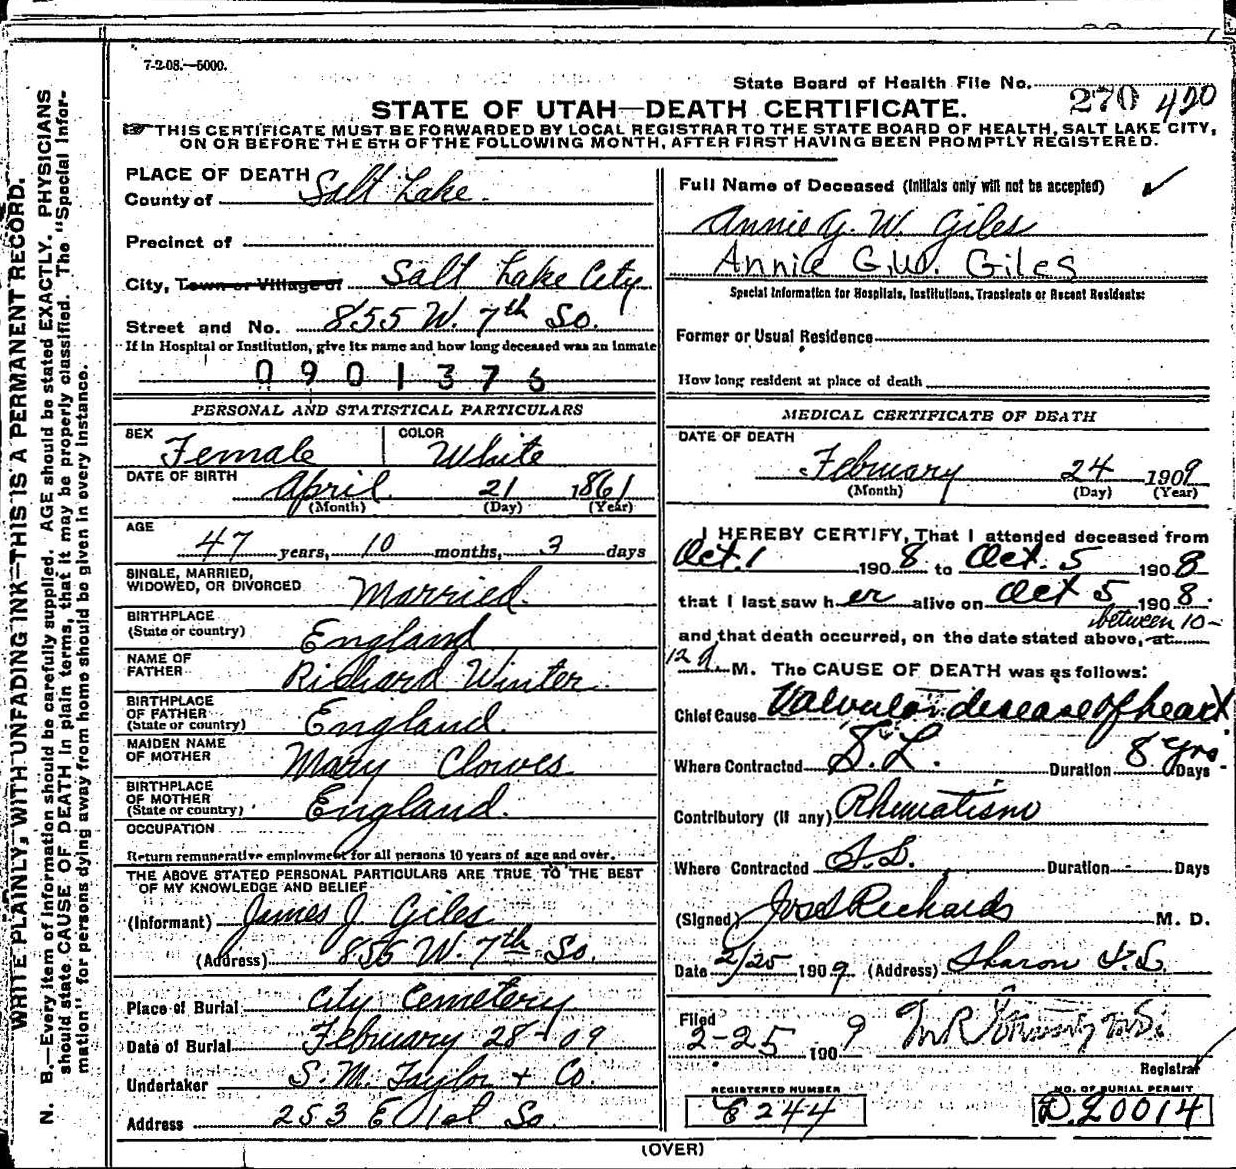 7-2-08.—5000.
State Board of Health File No. 270 420
STATE OF UTAH—DEATH CERTIFICATE.
THIS CERTIFICATE MUST BE FORWARDED BY LOCAL REGISTRAR TO THE STATE BOARD OF HEALTH, SALT LAKE CITY,
ON OR BEFORE THE 5TH OF THE FOLLOWING MONTH, AFTER FIRST HAVING BEEN PROMPTLY REGISTERED.
WRITE PLAINLY, WITH UNFADING INK—THIS IS A PERMANENT RECORD.
N. B.—Every item of information should be carefully supplied. AGE should be stated EXACTLY. PHYSICIANS
should state CAUSE OF DEATH in plain terms, that it may be properly classified. The "Special Infor-
mation" for persons dying away from home should be given in every instance.
PLACE OF DEATH
County of Salt Lake.
Precinct of
City, Town or Village of Salt Lake City
Street and No. 855 W. 7th So.
If in Hospital or Institution, give its name and how long deceased was an inmate
0901376
PERSONAL AND STATISTICAL PARTICULARS
SEX Female COLOR White
DATE OF BIRTH April 21 1861
(Month) (Day) (Year)
AGE 47 years, 10 months, 3 days
SINGLE, MARRIED,
WIDOWED, OR DIVORCED Married.
BIRTHPLACE
(State or country) England
NAME OF
FATHER Richard Winter
BIRTHPLACE
OF FATHER
(State or country) England.
MAIDEN NAME
OF MOTHER Mary Clowes
BIRTHPLACE
OF MOTHER
(State or country) England.
OCCUPATION
Return remunerative employment for all persons 10 years of age and over.
THE ABOVE STATED PERSONAL PARTICULARS ARE TRUE TO THE BEST
OF MY KNOWLEDGE AND BELIEF
(Informant) James J Giles
(Address) 855 W. 7th So.
Place of Burial City Cemetery
Date of Burial February 28-09
Undertaker S. M. Taylor + Co.
Address 253 E 1st So.
Full Name of Deceased (Initials only will not be accepted)
Annie G. W. Giles
Annie G.W. Giles
Special Information for Hospitals, Institutions, Transients or Recent Residents:
Former or Usual Residence
How long resident at place of death
MEDICAL CERTIFICATE OF DEATH
DATE OF DEATH
February 24 1909
(Month) (Day) (Year)
I HEREBY CERTIFY, That I attended deceased from
Oct. 1 1908 to Oct. 5 1908
that I last saw her alive on Oct 5 1908.
between 10-
and that death occurred, on the date stated above, at
12 M. The CAUSE OF DEATH was as follows:
Chief Cause Valvular disease of heart
Where Contracted S. L. Duration 8 yrs. Days
Contributory (if any) Rhumatism
Where Contracted S. L. Duration - Days
(Signed) Jos S Richards M. D.
Date 2/25 1909 (Address) Sharon S. L.
Filed
2-25 1909
Registrar
REGISTERED NUMBER
E 244
NO. OF BURIAL PERMIT
D. 20014
(OVER)